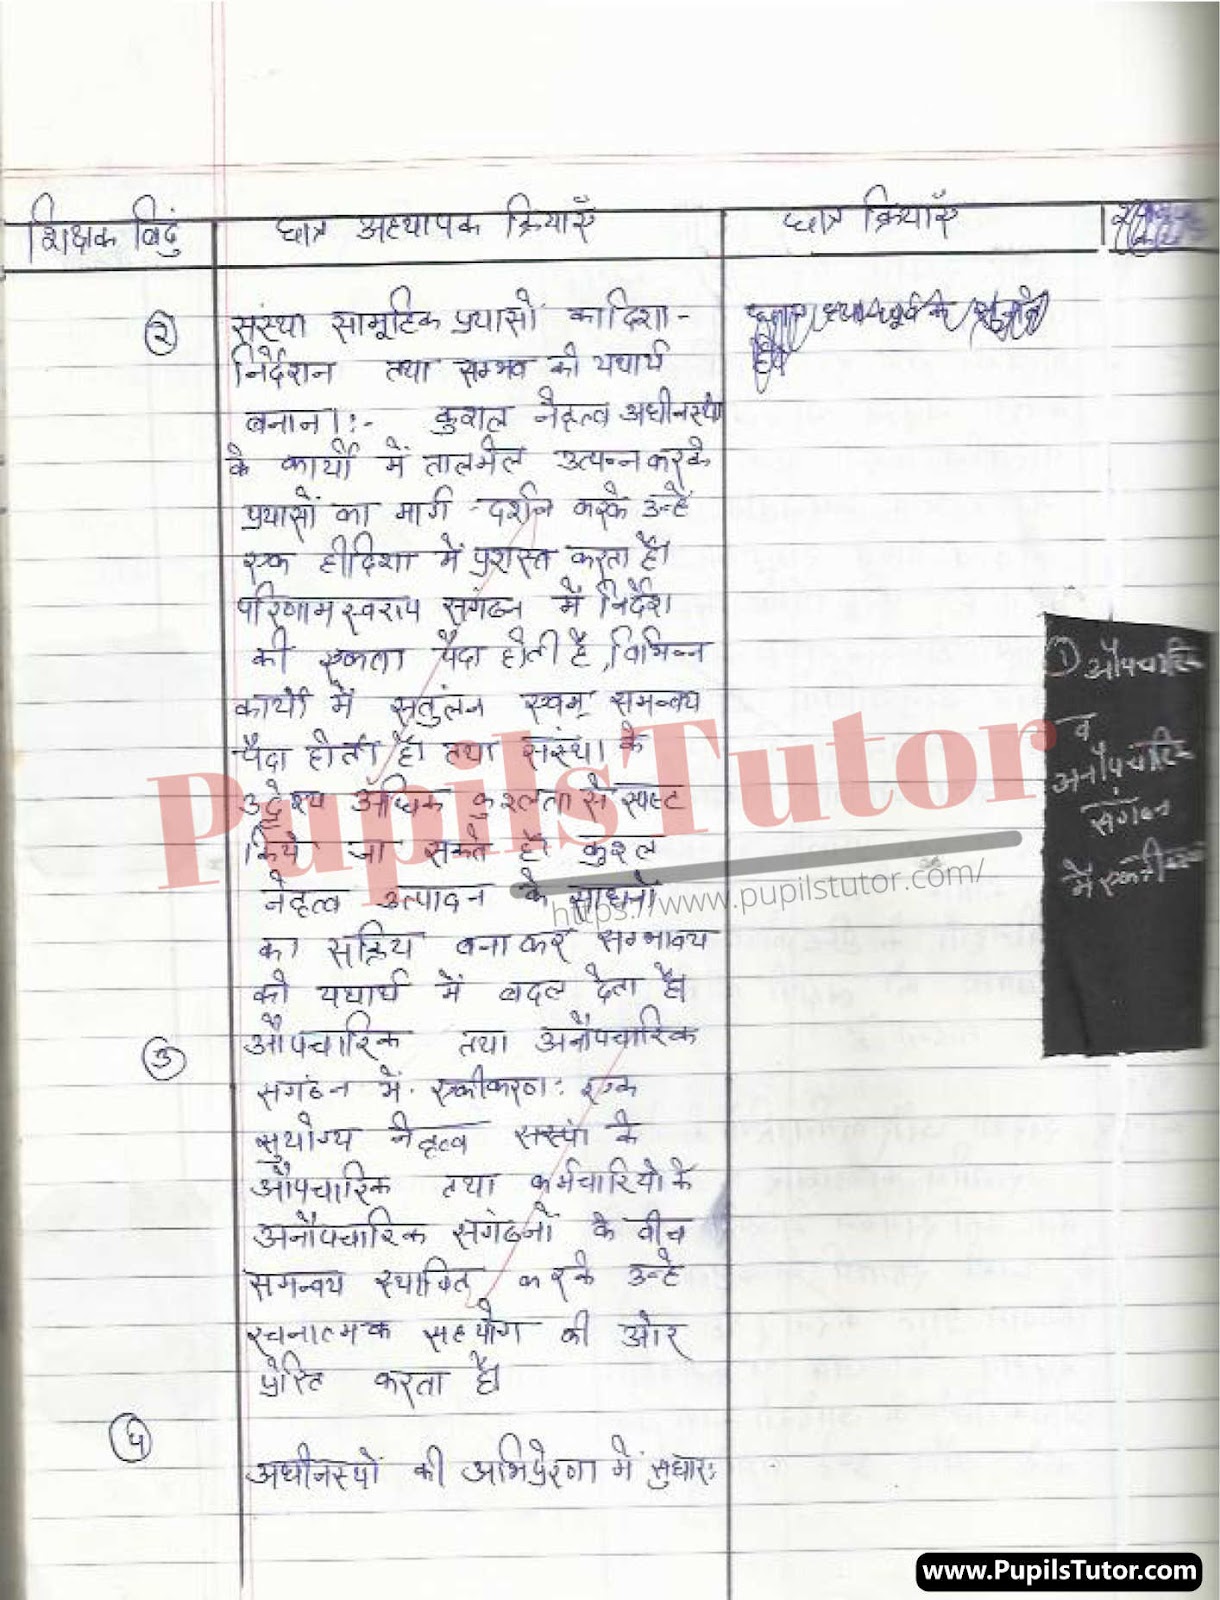 शिक्षक बिदुं
छात्र अध्यापक क्रियाएँ
छात्र क्रियाएँ
२
संस्था सामूहिक प्रयासों का दिशा-
निर्देशन तथा सम्भव को यथार्थ
बनाना:- कुशल नेतृत्व अधीनस्थों
के कार्यों में तालमेल उत्पन्न करके
प्रयासों का मार्ग-दर्शन करके उन्हें
एक ही दिशा में प्रशस्त करता है।
परिणामस्वरूप सगंठन में निर्देश
की एकता पैदा होती है, विभिन्न
कार्यों में सतुंलन एवम् समन्वय
पैदा होता है। तथा संस्था के
उद्देश्य अधिक कुशलता से स्पष्ट
किये जा सकते है। कुशल
नेतृत्व उत्पादन के साधनों
को सक्रिय बनाकर सम्भाव्य
को यथार्थ में बदल देता है।
३
औपचारिक तथा अनौपचारिक
सगंठन में एकीकरण: एक
सुयोग्य नेतृत्व सस्था के
औपचारिक तथा कर्मचारियो के
अनौपचारिक सगंठनों के बीच
समन्वय स्थापित करके उन्हे
रचनात्मक सहयोग की ओर
प्रेरित करता है।
अधीनस्थों की अभिप्रेरणा में सुधार:
① औपचारिक
व
अनौपचारिक
संगठन
में एकीकरण
PupilsTutor
https://www.pupilstutor.com/
www.PupilsTutor.com